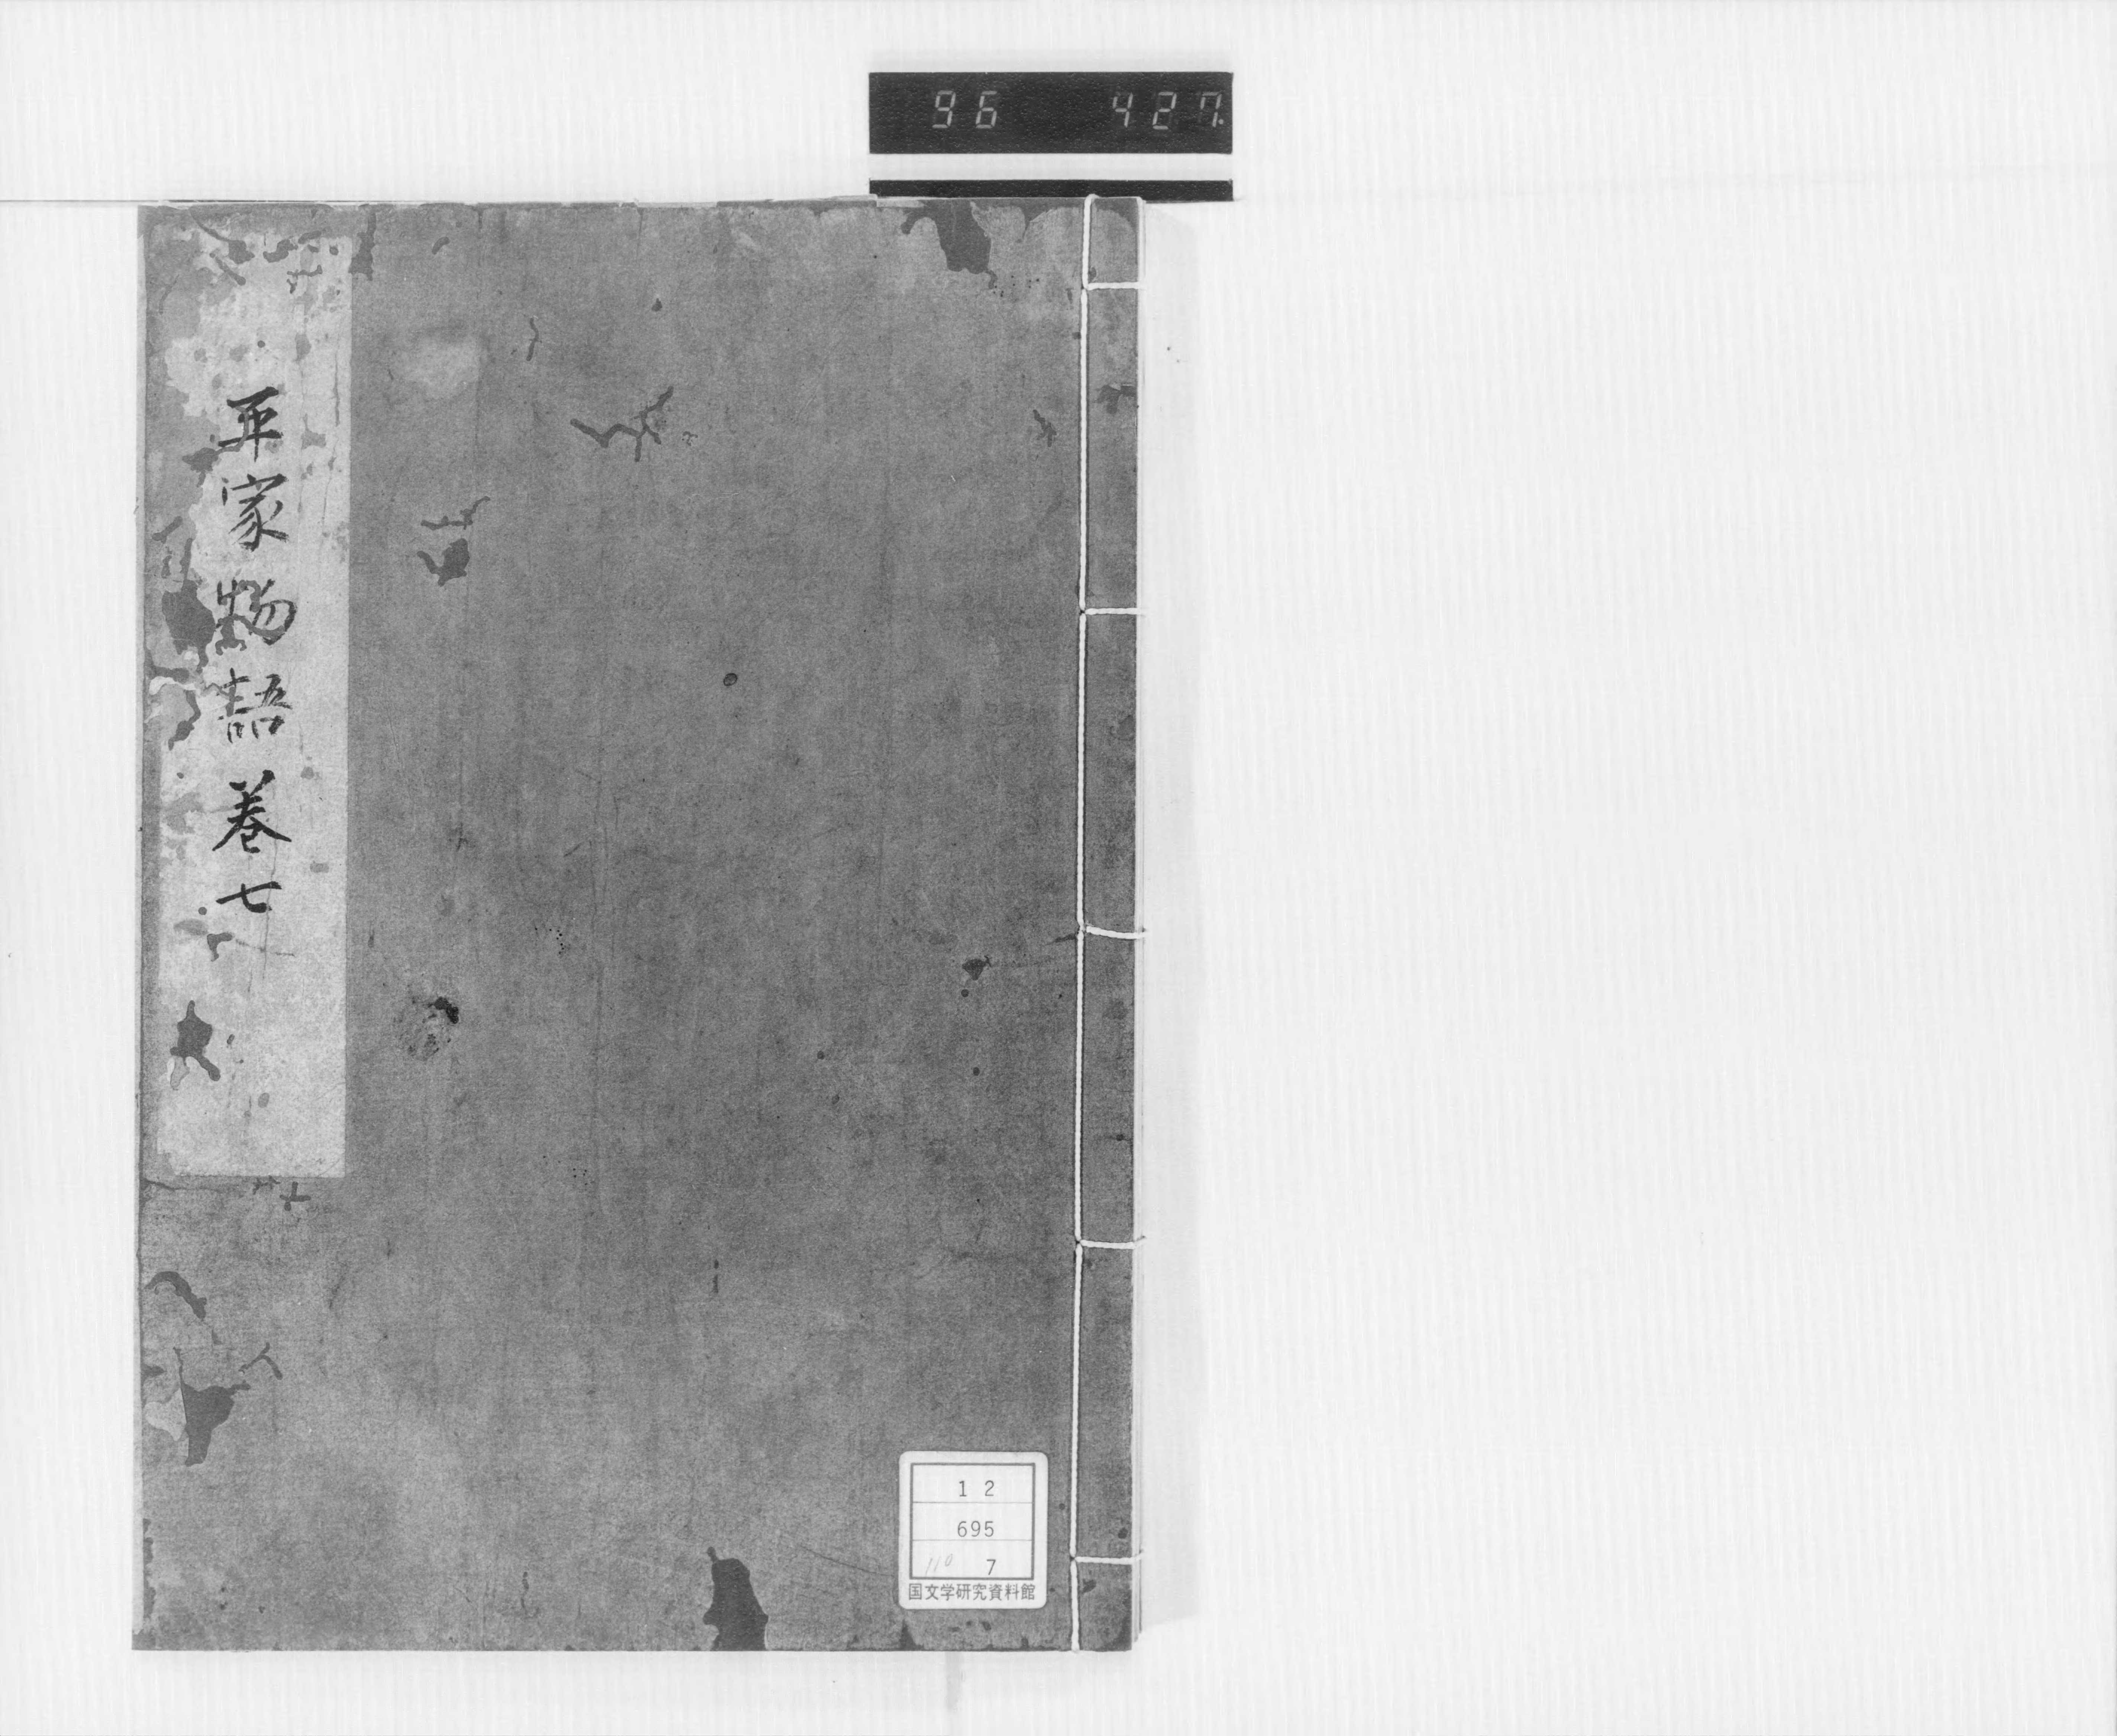 96 427.
平家物語巻七
12
695
110 7
国文学研究資料館